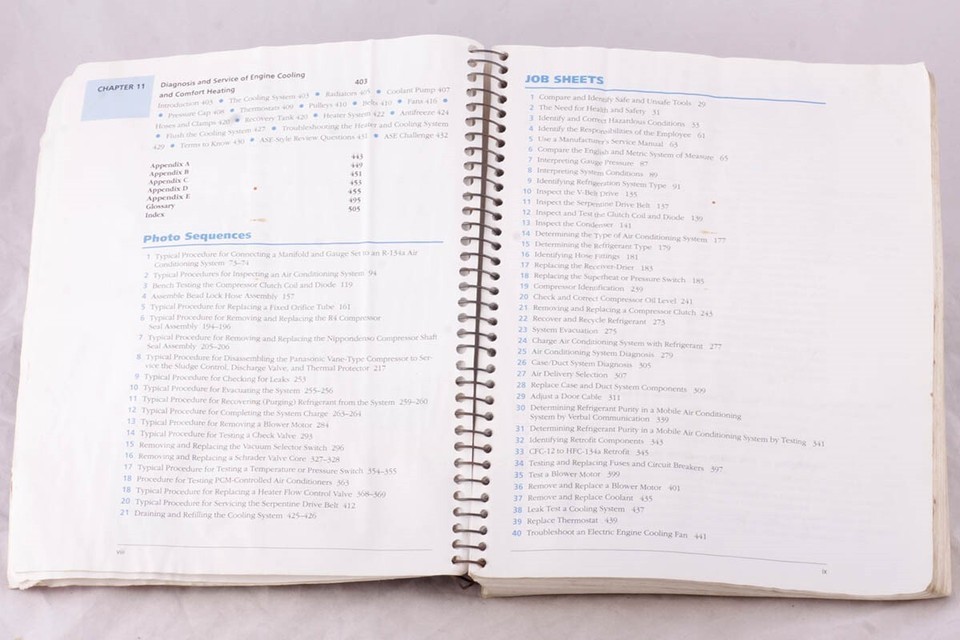 CHAPTER 11
Diagnosis and Service of Engine Cooling
and Comfort Heating 403
Introduction 403 • The Cooling System 403 • Radiators 405 • Coolant Pump 407
• Pressure Cap 408 • Thermostats 408 • Pulleys 410 • Belts 410 • Fans 416 •
Hoses and Clamps 420 • Recovery Tank 420 • Heater System 422 • Antifreeze 424
• Flush the Cooling System 427 • Troubleshooting the Heater and Cooling System
429 • Terms to Know 430 • ASE-Style Review Questions 431 • ASE Challenge 432
Appendix A 443
Appendix B 449
Appendix C 451
Appendix D 453
Appendix E 455
Glossary 495
Index 505
Photo Sequences
1 Typical Procedure for Connecting a Manifold and Gauge Set to an R-134a Air
Conditioning System 73–74
2 Typical Procedures for Inspecting an Air Conditioning System 94
3 Bench Testing the Compressor Clutch Coil and Diode 119
4 Assemble Bead Lock Hose Assembly 157
5 Typical Procedure for Replacing a Fixed Orifice Tube 161
6 Typical Procedure for Removing and Replacing the R4 Compressor
Seal Assembly 194–196
7 Typical Procedure for Removing and Replacing the Nippondenso Compressor Shaft
Seal Assembly 205–206
8 Typical Procedure for Disassembling the Panasonic Vane-Type Compressor to Ser-
vice the Sludge Control, Discharge Valve, and Thermal Protector 217
9 Typical Procedure for Checking for Leaks 253
10 Typical Procedure for Evacuating the System 255–256
11 Typical Procedure for Recovering (Purging) Refrigerant from the System 259–260
12 Typical Procedure for Completing the System Charge 263–264
13 Typical Procedure for Removing a Blower Motor 284
14 Typical Procedure for Testing a Check Valve 293
15 Removing and Replacing the Vacuum Selector Switch 296
16 Removing and Replacing a Schrader Valve Core 327–328
17 Typical Procedure for Testing a Temperature or Pressure Switch 354–355
18 Procedure for Testing PCM-Controlled Air Conditioners 363
18 Typical Procedure for Replacing a Heater Flow Control Valve 368–369
20 Typical Procedure for Servicing the Serpentine Drive Belt 412
21 Draining and Refilling the Cooling System 425–426
viii
JOB SHEETS
1 Compare and Identify Safe and Unsafe Tools 29
2 The Need for Health and Safety 31
3 Identify and Correct Hazardous Conditions 33
4 Identify the Responsibilities of the Employee 61
5 Use a Manufacturer's Service Manual 63
6 Compare the English and Metric System of Measure 65
7 Interpreting Gauge Pressure 87
8 Interpreting System Conditions 89
9 Identifying Refrigeration System Type 91
10 Inspect the V-Belt Drive 135
11 Inspect the Serpentine Drive Belt 137
12 Inspect and Test the Clutch Coil and Diode 139
13 Inspect the Condenser 141
14 Determining the Type of Air Conditioning System 177
15 Determining the Refrigerant Type 179
16 Identifying Hose Fittings 181
17 Replacing the Receiver-Drier 183
18 Replacing the Superheat or Pressure Switch 185
19 Compressor Identification 239
20 Check and Correct Compressor Oil Level 241
21 Removing and Replacing a Compressor Clutch 243
22 Recover and Recycle Refrigerant 273
23 System Evacuation 275
24 Charge Air Conditioning System with Refrigerant 277
25 Air Conditioning System Diagnosis 279
26 Case/Duct System Diagnosis 305
27 Air Delivery Selection 307
28 Replace Case and Duct System Components 309
29 Adjust a Door Cable 311
30 Determining Refrigerant Purity in a Mobile Air Conditioning
System by Verbal Communication 339
31 Determining Refrigerant Purity in a Mobile Air Conditioning System by Testing 341
32 Identifying Retrofit Components 343
33 CFC-12 to HFC-134a Retrofit 345
34 Testing and Replacing Fuses and Circuit Breakers 397
35 Test a Blower Motor 399
36 Remove and Replace a Blower Motor 401
37 Remove and Replace Coolant 435
38 Leak Test a Cooling System 437
39 Replace Thermostat 439
40 Troubleshoot an Electric Engine Cooling Fan 441
ix